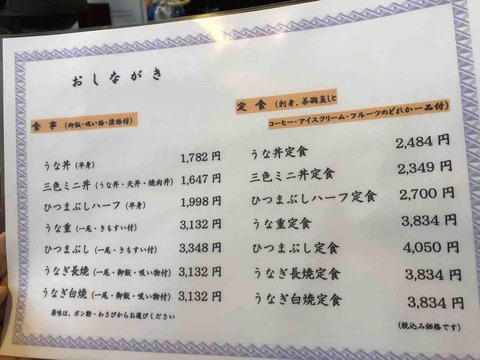 おしながき
食事（御飯・吸い物・漬物付）
うな丼（半身） 1,782円
三色ミニ丼（うな丼・天丼・焼肉丼） 1,647円
ひつまぶしハーフ（半身） 1,998円
うな重（一尾・きもすい付） 3,132円
ひつまぶし（一尾・きもすい付） 3,348円
うなぎ長焼（一尾・御飯・吸い物付） 3,132円
うなぎ白焼（一尾・御飯・吸い物付） 3,132円
薬味は、ポン酢・わさびからお選びください
定食（刺身、茶碗蒸しと
コーヒー・アイスクリーム・フルーツのどれか一品付）
うな丼定食 2,484円
三色ミニ丼定食 2,349円
ひつまぶしハーフ定食 2,700円
うな重定食 3,834円
ひつまぶし定食 4,050円
うなぎ長焼定食 3,834円
うなぎ白焼定食 3,834円
（税込み価格です）